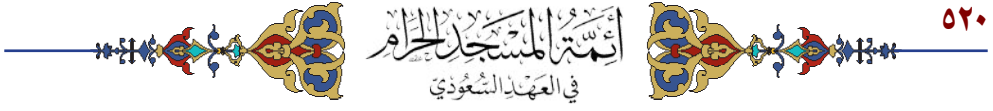 ٥٢٠
أَئِمَّةُ المَسْجِدِ الحَرَامِ
في العَهْدِ السُّعُودِيِّ